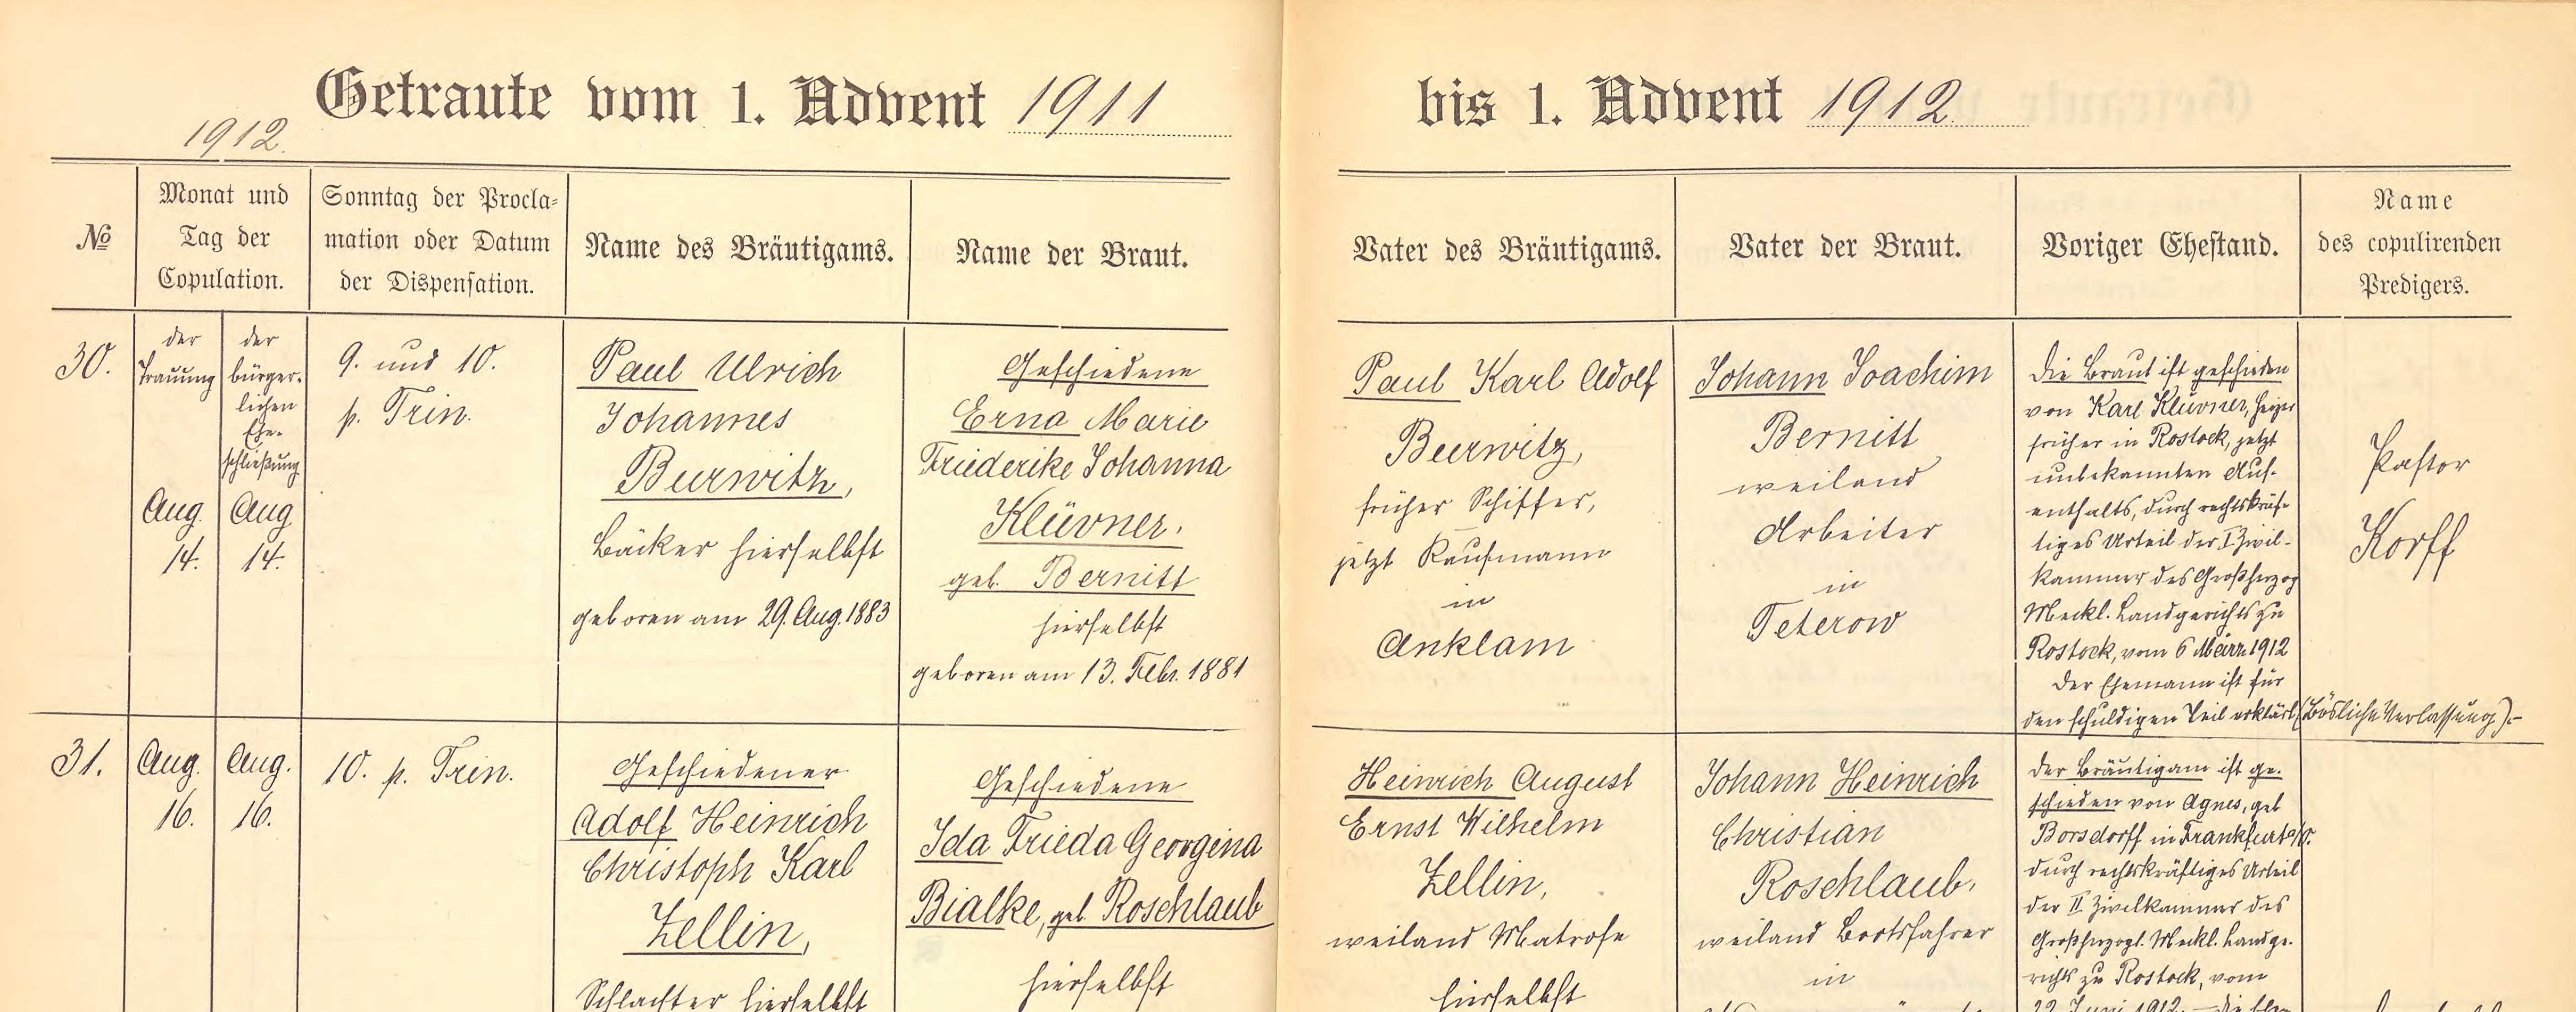 Getraute vom 1. Advent 1911
bis 1. Advent 1912
1912.
№
Monat und
Tag der
Copulation.
Sonntag der Procla-
mation oder Datum
der Dispensation.
Name des Bräutigams.
Name der Braut.
Vater des Bräutigams.
Vater der Braut.
Voriger Ehestand.
Name
des copulirenden
Predigers.
30.
der
Trauung
Aug.
14.
der
bürger-
lichen
Ehe-
schließung
Aug
14.
9. und 10.
p. Trin.
Paul Ulrich
Johannes
Burwitz,
Bäcker hierselbst
geboren am 29. Aug. 1883
Geschiedene
Erna Marie
Friederike Johanna
Klüvner.
geb. Bernitt
hierselbst
geboren am 13. Febr. 1881
Paul Karl Adolf
Burwitz,
früher Schiffer,
jetzt Kaufmann
in
Anklam
Johann Joachim
Bernitt
weiland
Arbeiter
in
Teterow
Die Braut ist geschieden
von Karl Klüvner, Heizer
früher in Rostock, jetzt
unbekannten Auf-
enthalts, durch rechtskräf-
tiges Urteil der I. Zivil-
kammer des Großherzog
Meckl. Landgerichts zu
Rostock, vom 6 März 1912
Der Ehemann ist für
den schuldigen Teil erklärt (Bösliche Verlassung).-
Pastor
Korff
31.
Aug.
16.
Aug.
16.
10. p. Trin.
Geschiedener
Adolf Heinrich
Christoph Karl
Zellin,
Schlachter hierselbst
Geschiedene
Ida Frieda Georgina
Bialke, geb. Roschlaub
hierselbst
Heinrich August
Ernst Wilhelm
Zellin,
weiland Matrose
hierselbst
Johann Heinrich
Christian
Roschlaub,
weiland Bootsfahrer
in
Der Bräutigam ist ge-
schieden von Agnes, geb
Borsdorff in Frankfurt a/O.
durch rechtskräftiges Urteil
der II Zivilkammer des
Großherzogl. Meckl. Landge-
richts zu Rostock, vom
22 Juni 1912. — die